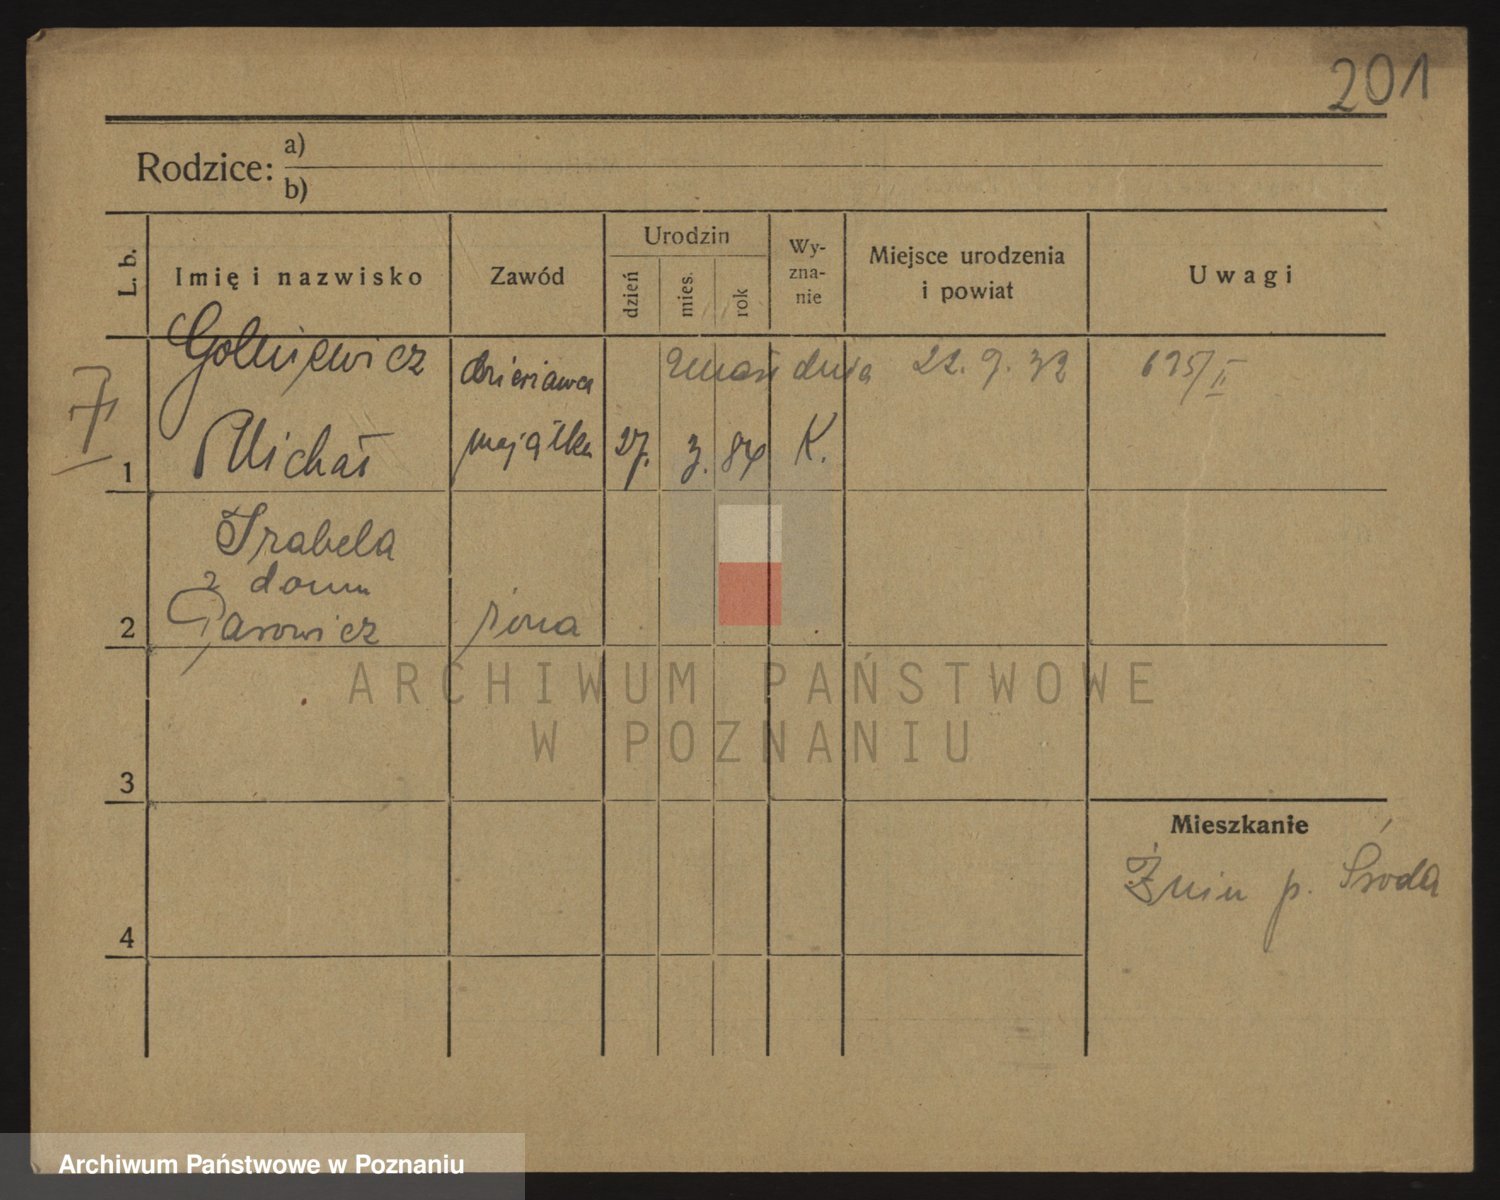 201
Rodzice: a)
b)
L. b.
Imię i nazwisko
Zawód
Urodzin
dzień
mies.
rok
Wy-
zna-
nie
Miejsce urodzenia
i powiat
Uwagi
dzierżawca
zmarł dnia 22. 9. 32
615/II
1
Michał
majątku
27.
3.
84
K.
Izabela
z domu
2
żona
3
4
Mieszkanie
Żnin p. Środa
ARCHIWUM PAŃSTWOWE
W POZNANIU
Archiwum Państwowe w Poznaniu